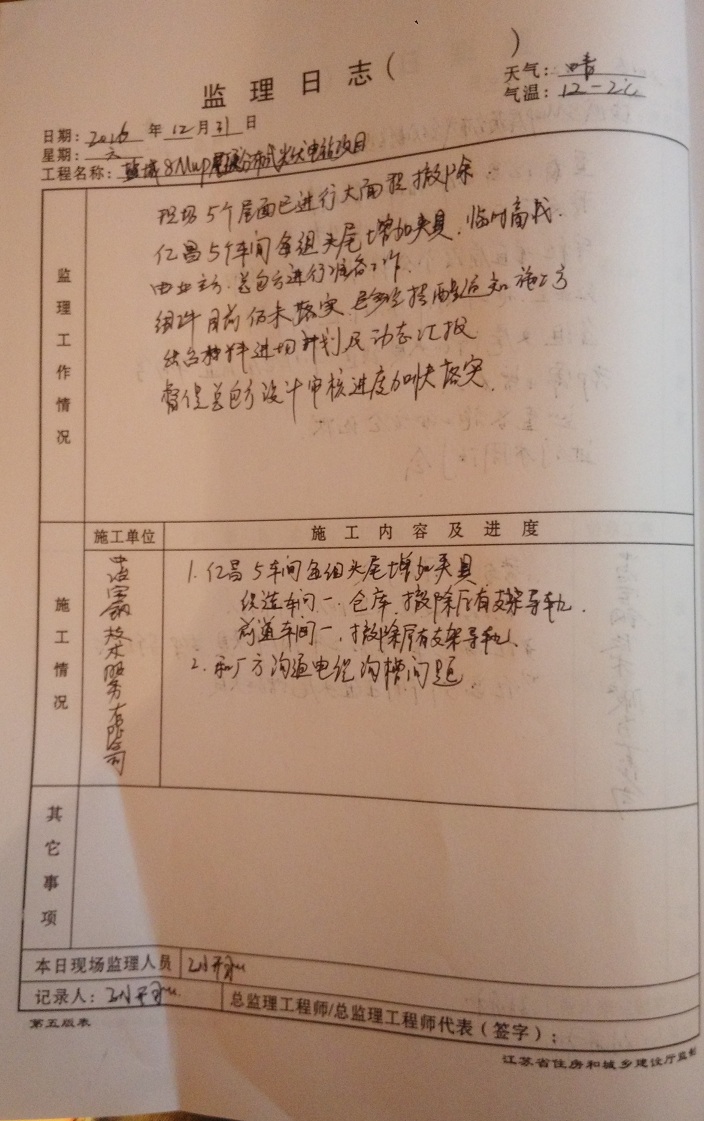 监理日志( )
天气: 晴
气温: 12-2℃
日期: 2016 年 12 月 31 日
星期: 六
工程名称: 盐城8Mwp屋顶分布式光伏电站项目
监理工作情况
现场5个屋面已进行大面积撤除.
亿昌5个车间每组头尾增加夹具.临时高栈.
由业主方.总包方进行准备工作.
组件目前仍未落实.已多次提醒通知施工方
出台构件进场计划及动态汇报
督促总包方设计审核进度加快落实.
施工情况
施工单位
施工内容及进度
技术服务有限公司
1.亿昌5车间每组头尾增加夹具
织造车间一.仓库.撤除后有支架导轨.
前道车间一.撤除后有支架导轨.
2.和厂方沟通电缆沟槽问题.
其它事项
本日现场监理人员
记录人:
总监理工程师/总监理工程师代表(签字):
第五版表
江苏省住房和城乡建设厅监制